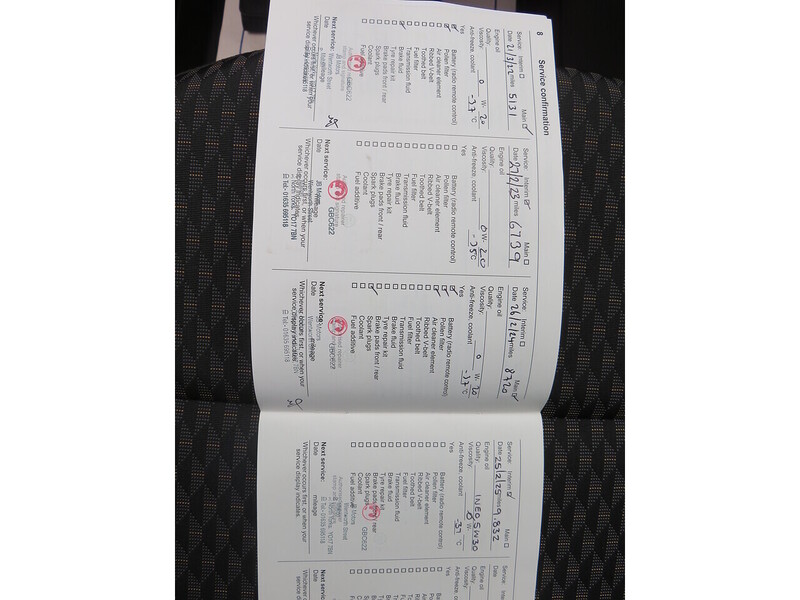 8 Service confirmation
Service: Interim ☐ Main ☑
Date 21/3/12 miles 5131
Engine oil
Quality:
Viscosity: 0 W- 20
Anti-freeze, coolant -37 °C
Yes
☑ Battery (radio remote control)
☑ Pollen filter
☐ Air cleaner element
☐ Ribbed V-belt
☐ Toothed belt
☐ Fuel filter
☐ Transmission fluid
☑ Brake fluid
☐ Tyre repair kit
☐ Brake pads front / rear
☐ Spark plugs
☐ Coolant
☐ Fuel additive
GBO622
Next service:
Date mileage
Whichever occurs first, or when your
service display indicates.
Service: Interim ☑ Main ☐
Date 27/2/23 miles 6739
Engine oil
Quality:
Viscosity: 0 W- 20
Anti-freeze, coolant -35 °C
Yes
☐ Battery (radio remote control)
☐ Pollen filter
☐ Air cleaner element
☐ Ribbed V-belt
☐ Toothed belt
☐ Fuel filter
☐ Transmission fluid
☐ Brake fluid
☐ Tyre repair kit
☐ Brake pads front / rear
☐ Spark plugs
☐ Coolant
☐ Fuel additive
GBO622
Next service:
Date mileage
Whichever occurs first, or when your
service display indicates.
Tel: 01635 695118
Service: Interim ☐ Main ☑
Date 26/2/24 miles 8720
Engine oil
Quality:
Viscosity: 0 W- 20
Anti-freeze, coolant -37 °C
Yes
☑ Battery (radio remote control)
☑ Pollen filter
☑ Air cleaner element
☐ Ribbed V-belt
☐ Toothed belt
☐ Fuel filter
☐ Transmission fluid
☐ Brake fluid
☐ Tyre repair kit
☐ Brake pads front / rear
☑ Spark plugs
☐ Coolant
☐ Fuel additive
GBO622
Next service:
Date mileage
Whichever occurs first, or when your
service display indicates.
Service: Interim ☑ Main ☐
Date 25/2/25 miles 9,832
Engine oil
Quality: INEO 5W30
Viscosity: 0 W-
Anti-freeze, coolant -37 °C
Yes
☐ Battery (radio remote control)
☐ Pollen filter
☐ Air cleaner element
☐ Ribbed V-belt
☐ Toothed belt
☐ Fuel filter
☐ Transmission fluid
☐ Brake fluid
☐ Tyre repair kit
☐ Brake pads front / rear
☐ Spark plugs
☐ Coolant
☐ Fuel additive
GBO622
Next service:
Date mileage
Whichever occurs first, or when your
service display indicates.
Service: Inter
Date
Engine oil
Quality:
Viscosity:
Anti-freeze, co
Yes
☐ Battery (radi
☐ Pollen filter
☐ Air cleaner
☐ Ribbed V-b
☐ Toothed be
☐ Fuel filter
☐ Transmissi
☐ Brake fluid
☐ Tyre repair
☐ Brake pads
☐ Spark plug
☐ Coolant
☐ Fuel additi
Next service:
Date
Whichever o
service disp